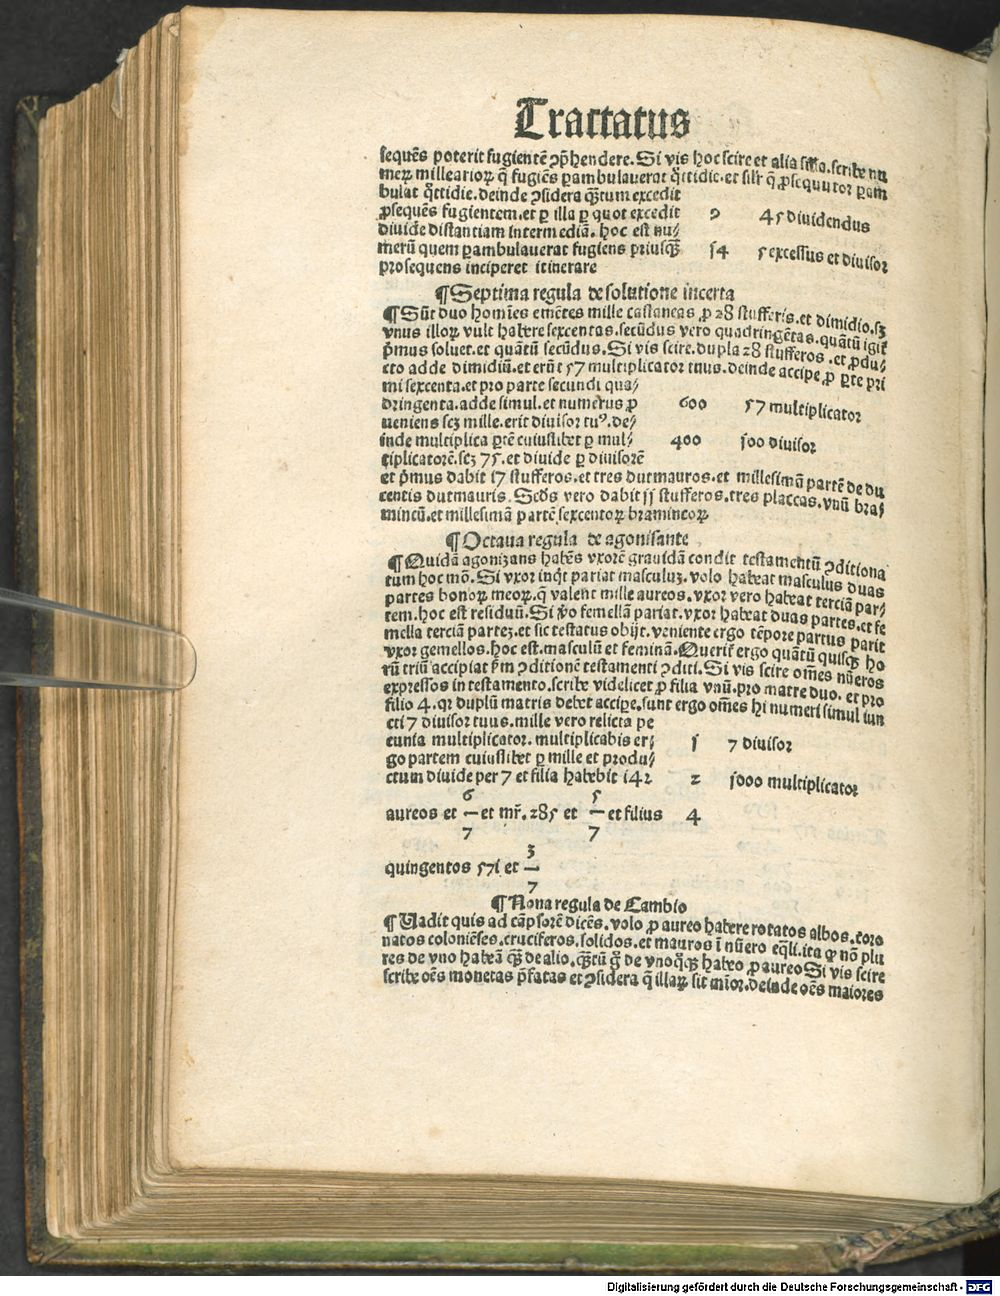 Tractatus
sequẽs poterit fugientẽ ꝯp̃hendere. Si vis hoc scire et alia sil̃ia. scribe nu
meꝝ milleariorꝝ q̃ fugiẽs ꝑambulauerat q̊ttidie. et sil̃r q̃ ꝓsequutor ꝑam
bulat q̊ttidie. deinde ꝯsidera q̃ꝫtum excedit
ꝓsequẽs fugientem. et ꝑ illa ꝑ quot excedit 9 45 diuidendus
diuide distantiam intermediã. hoc est nu⸗
merũ quem ꝑambulauerat fugiens priusq̃ꝫ 54 5 excessus et diuisor
prosequens inciperet itinerare
¶ Septima regula de solutione incerta
¶ Sũt duo homĩes emẽtes mille castaneas ꝓ 28 stufferis. et dimidio. sꝫ
vnus illoꝝ vult habere sexcentas. secũdus vero quadringẽtas. quãtũ igit̃
p̃mus soluet. et quãtũ secũdus. Si vis scire. dupla 28 stufferos. et ꝓdu⸗
cto adde dimidiũ. et erũt 57 multiplicator tuus. deinde accipe ꝓ ꝑte pri
mi sexcenta. et pro parte secundi qua⸗
dringenta. adde simul. et numerus ꝓ 600 57 multiplicator
ueniens scꝫ mille. erit diuisor tuꝰ. de⸗
inde multiplica ꝑtẽ cuiuslibet ꝑ mul⸗ 400 100 diuisor
tiplicatorẽ. scꝫ 75. et diuide ꝑ diuisorẽ
et p̃mus dabit 17 stufferos. et tres dutmauros. et millesimã partẽ de du
centis dutmauris. Scd̃s vero dabit 11 stufferos. tres placcas. vnũ bra⸗
mincũ. et millesimã partẽ sexcentoꝝ bramincoꝝ
¶ Octaua regula de agonisante
¶ Quidã agonizans habẽs vxorẽ grauidã condit testamentũ ꝯditiona
tum hoc mõ. Si vxor inq̃t pariat masculuꝫ. volo habeat masculus duas
partes bonoꝝ meoꝝ. q̃ valent mille aureos. vxor vero habeat terciã par⸗
tem. hoc est residuũ. Si ṽo femellã pariat. vxor habeat duas partes. et fe
mella terciã parteꝫ. et sic testatus obijt. veniente ergo tẽpore partus parit
vxor gemellos. hoc est. masculũ et feminã. Querit̃ ergo quãtũ quisqꝫ ho
rũ triũ accipiat p̃m ꝯditionẽ testamenti ꝯditi. Si vis scire om̃es nũeros
expressos in testamento. scribe videlicet ꝓ filia vnũ. pro matre duo. et pro
filio 4. qꝛ duplũ matris debet accipe. sunt ergo om̃es hi numeri simul iun
cti 7 diuisor tuus. mille vero relicta pe
cunia multiplicator. multiplicabis er⸗ 1 7 diuisor
go partem cuiuslibet ꝑ mille et produ⸗
ctum diuide per 7 et filia habebit 142 2 1000 multiplicator
aureos et 6/7 et mr̃. 285 et 5/7 et filius 4
quingentos 571 et 3/7
¶ Nona regula de Cambio
¶ Uadit quis ad cãpsorẽ dicẽs. volo ꝓ aureo habere rotatos albos. coro
natos coloniẽses. cruciferos. solidos. et mauros ĩ nũero eq̃li. ita ꝙ nõ plu
res de vno habeã q̃ꝫ de alio. q̃ꝫtũ g̊ de vnoq̊qꝫ habeo ꝓ aureo Si vis scire
scribe oẽs monetas p̃fatas et ꝯsidera q̃ illaꝝ sit mĩor. deinde oẽs maiores
Digitalisierung gefördert durch die Deutsche Forschungsgemeinschaft - DFG